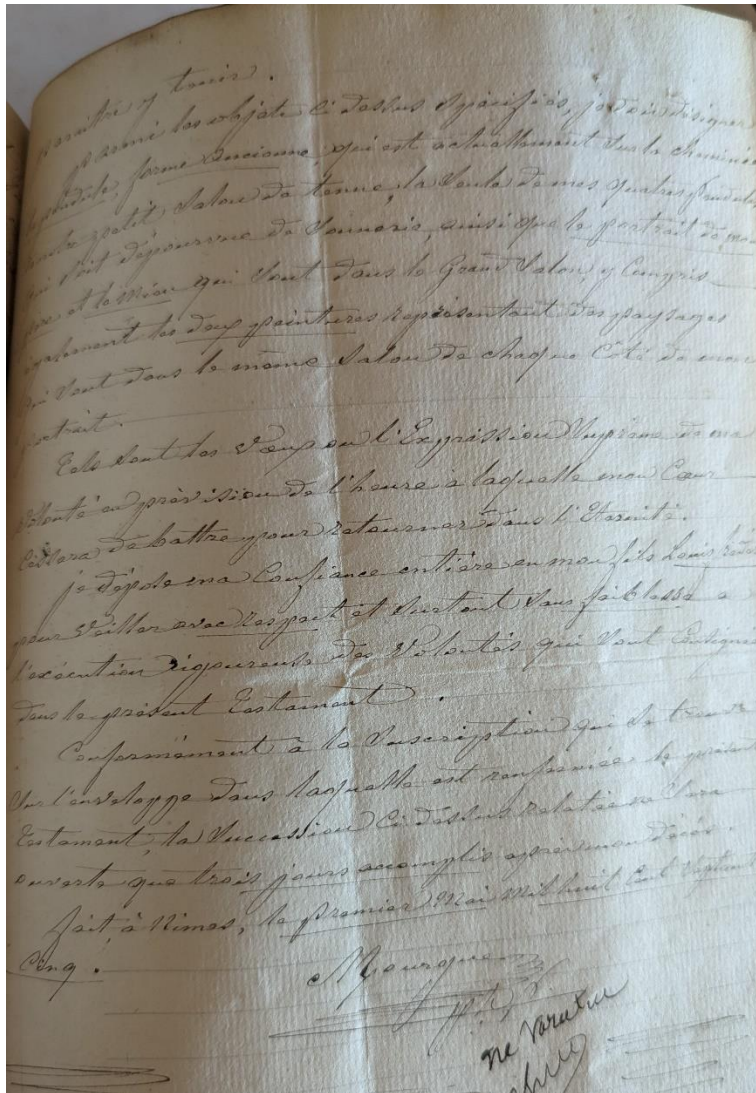 paraitre y tenir.
Parmi les objets ci dessus spécifiés, je dois désigner
la pendule, forme ancienne, qui est actuellement sur la cheminée
petit Salon de tenue, la seule de mes quatres pendules
qui soit dépourvue de Sonnerie, ainsi que le portrait de ma
et le mien qui sont dans le Grand Salon, y Compris
également les deux peintures représentant des paysages
qui sont dans le même Salon de chaque Côté de mon
portrait.
Tels sont les Vœux ou l'Expression Suprême de ma
Volonté en prévision de l'heure à laquelle mon Cœur
Cessera de battre pour retourner dans l'Eternité.
je dépose ma Confiance entière en mon fils Louis
pour Veiller avec respect et surtout sans faiblesse a
l'exécution rigoureuse des Volontés qui sont Consignées
dans le présent Testament.
Conformément à la Suscription qui se trouve
sur l'enveloppe dans laquelle est renfermée le présent
Testament, la Succession Ci dessus relatée ne sera
ouverte que trois jours accomplis après mon décès.
fait à Nimes, le premier Mai Mil huit Cent Septante
Cinq.
Mourgues
ne varietur